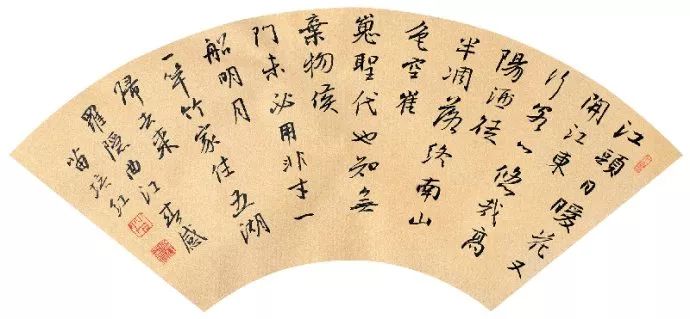 江頭日暖花又
開江東
行客心悠哉高
陽酒徒
半凋落終南山
色空崔
嵬聖代也知無
棄物侯
門未必用非才一
船明月
一竿竹家住五湖
歸去来
羅隱曲江春感